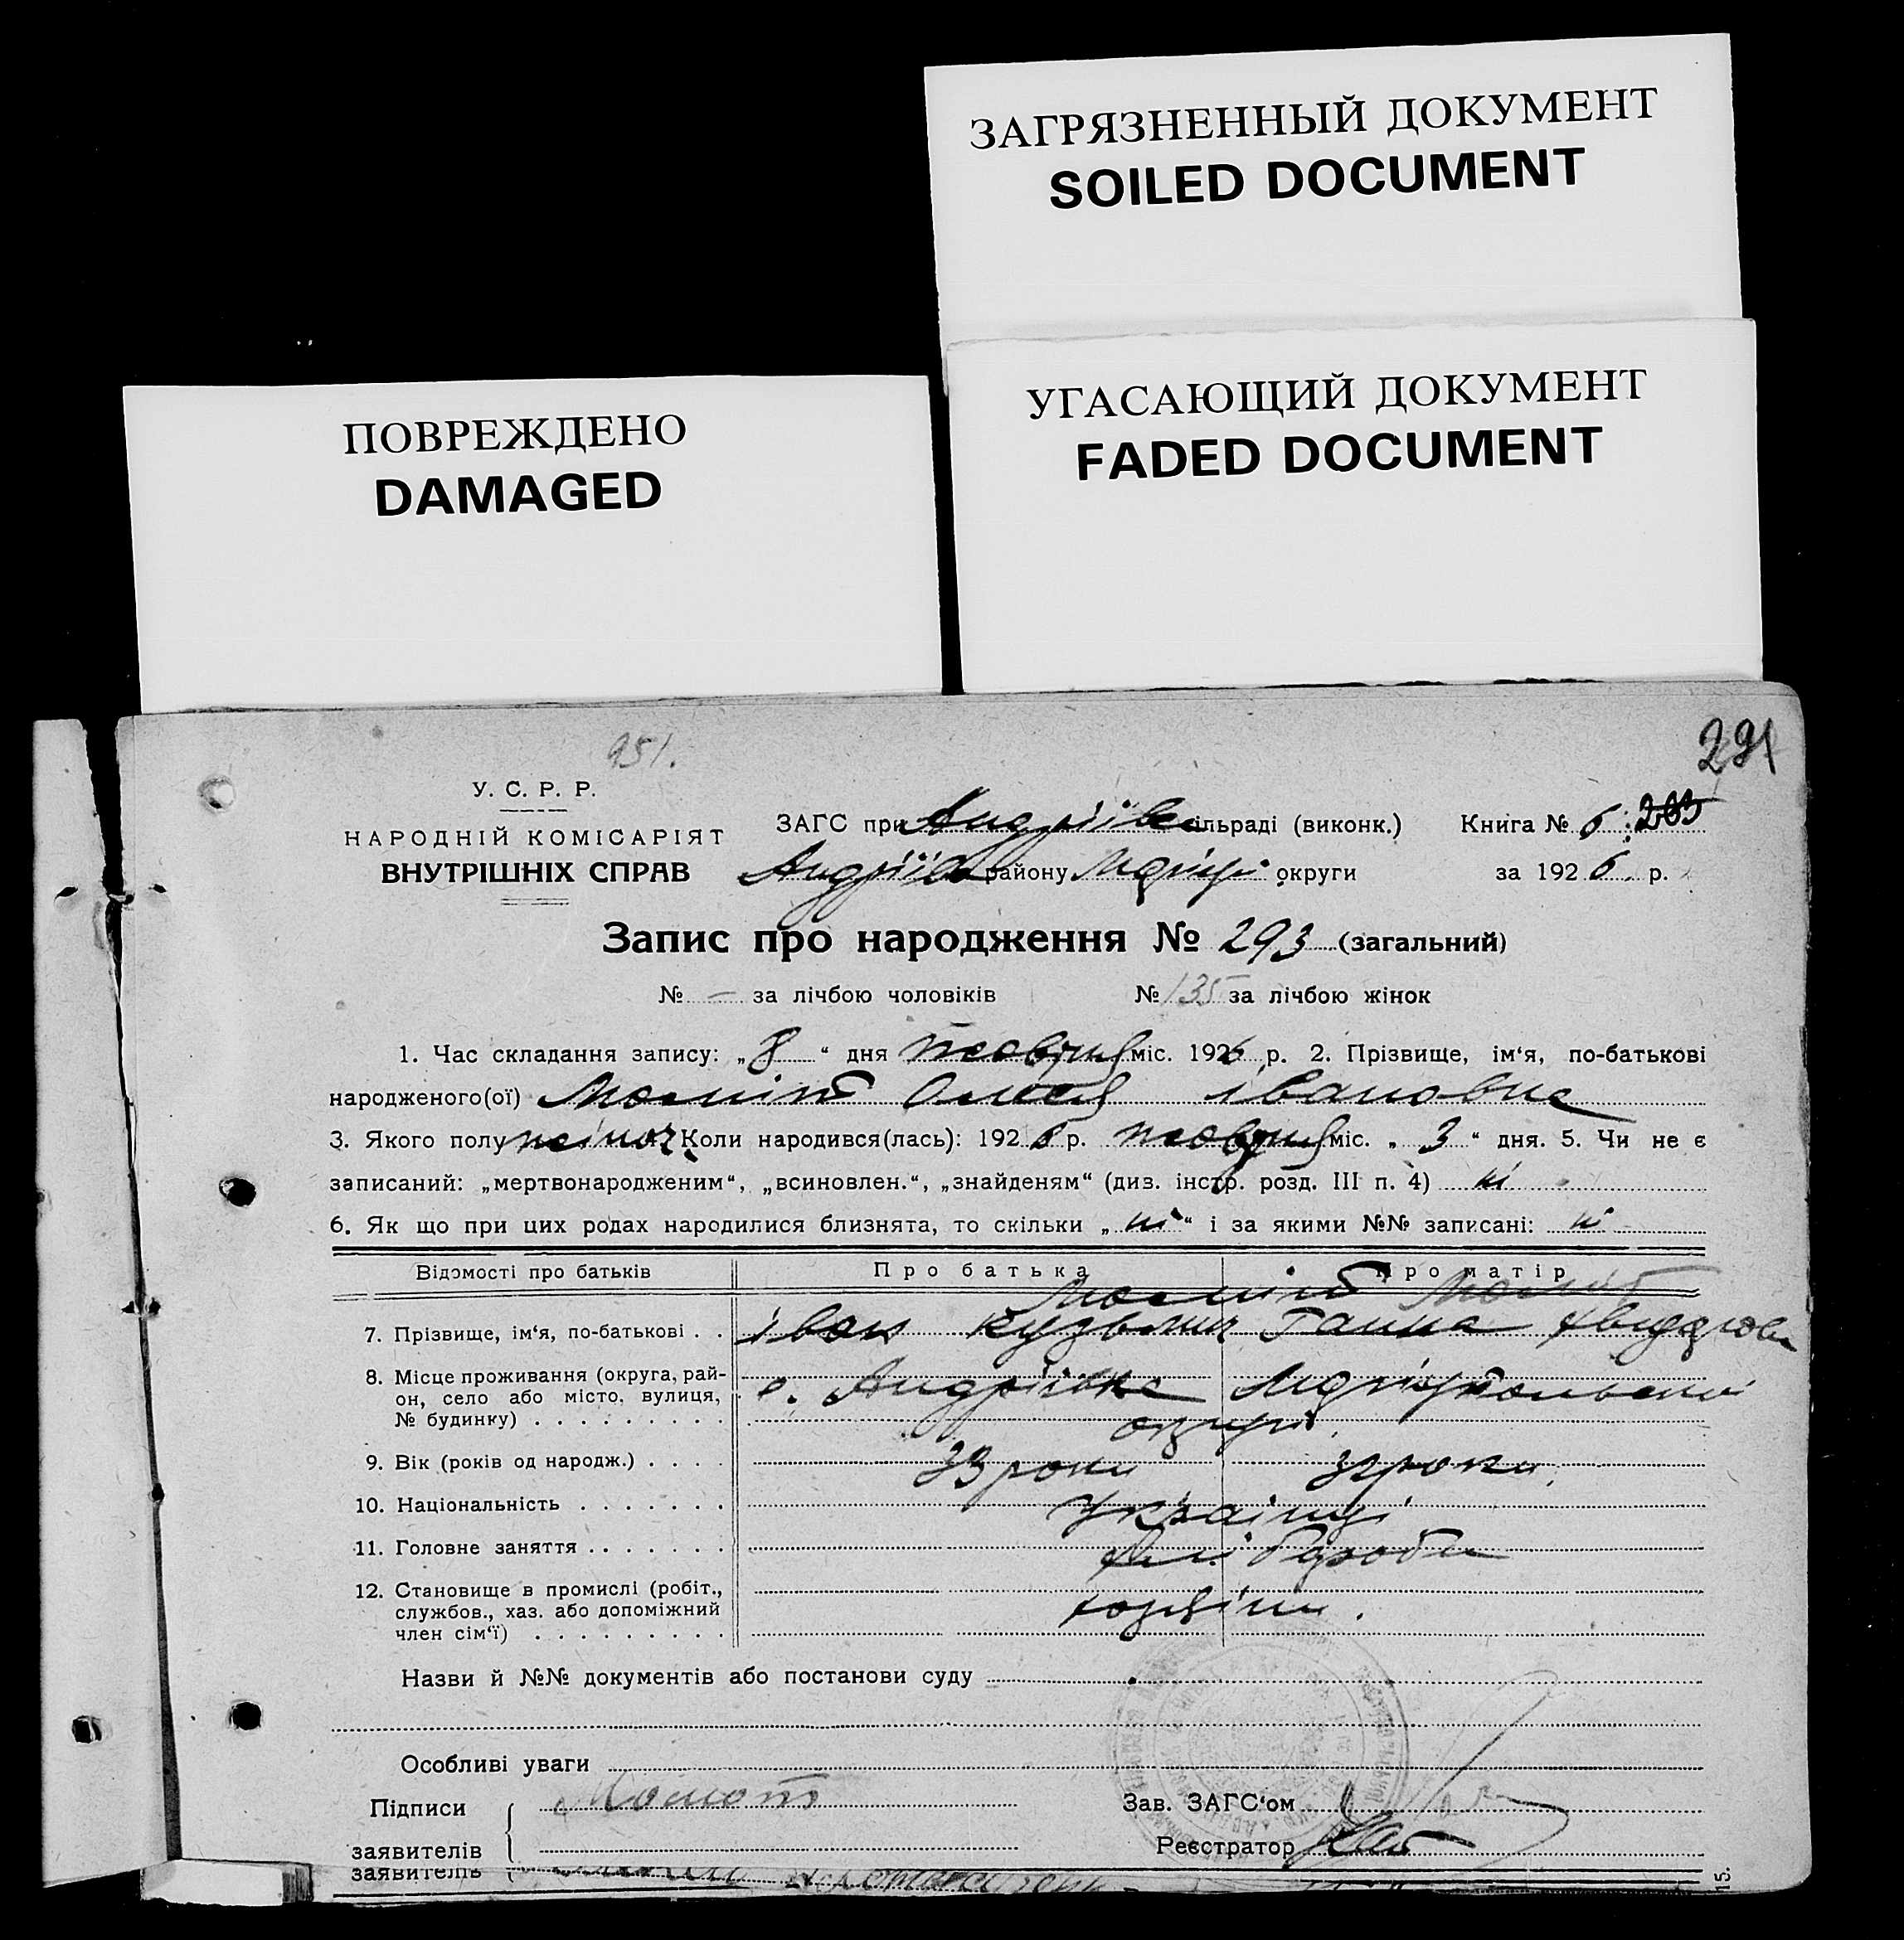 ЗАГРЯЗНЕННЫЙ ДОКУМЕНТ
SOILED DOCUMENT
УГАСАЮЩИЙ ДОКУМЕНТ
FADED DOCUMENT
ПОВРЕЖДЕНО
DAMAGED
951.
291
У. С. Р. Р.
НАРОДНІЙ КОМІСАРІЯТ
ВНУТРІШНІХ СПРАВ
ЗАГС при Андріївс сільраді (виконк.) Книга № 6 203
Андріїв району Маріуп округи за 1926 р.
Запис про народження № 293 (загальний)
№ — за лічбою чоловіків № 135 за лічбою жінок
1. Час складання запису: „8“ дня жовтня міс. 1926 р. 2. Прізвище, ім‘я, по-батькові
народженого(ої) Олеся Івановна
3. Якого полу жіноч. Коли народився(лась): 1926 р. жовтня міс. „3“ дня. 5. Чи не є
записаний: „мертвонародженим“, „всиновлен.“, „знайденям“ (див. інстр. розд. III п. 4) ні
6. Як що при цих родах народилися близнята, то скільки „ні“ і за якими №№ записані: ні
Відомості про батьків Про батька Про матір
7. Прізвище, ім‘я, по-батькові . . Іван Кузьмич Ганна
8. Місце проживання (округа, рай-
он, село або місто, вулиця,
№ будинку) . . . . . . . . . с. Андріївка Маріупольської
округи
9. Вік (років од народж.) . . . . 33 роки роки
10. Національність . . . . . . . Українці
11. Головне заняття . . . . . . . Хлібороби
12. Становище в промислі (робіт.,
службов., хаз. або допоміжний
член сім‘ї) . . . . . . . . . хозяїни.
Назви й №№ документів або постанови суду
Особливі уваги
Підписи
заявителів
Зав. ЗАГС‘ом
Реєстратор
заявителів
15.